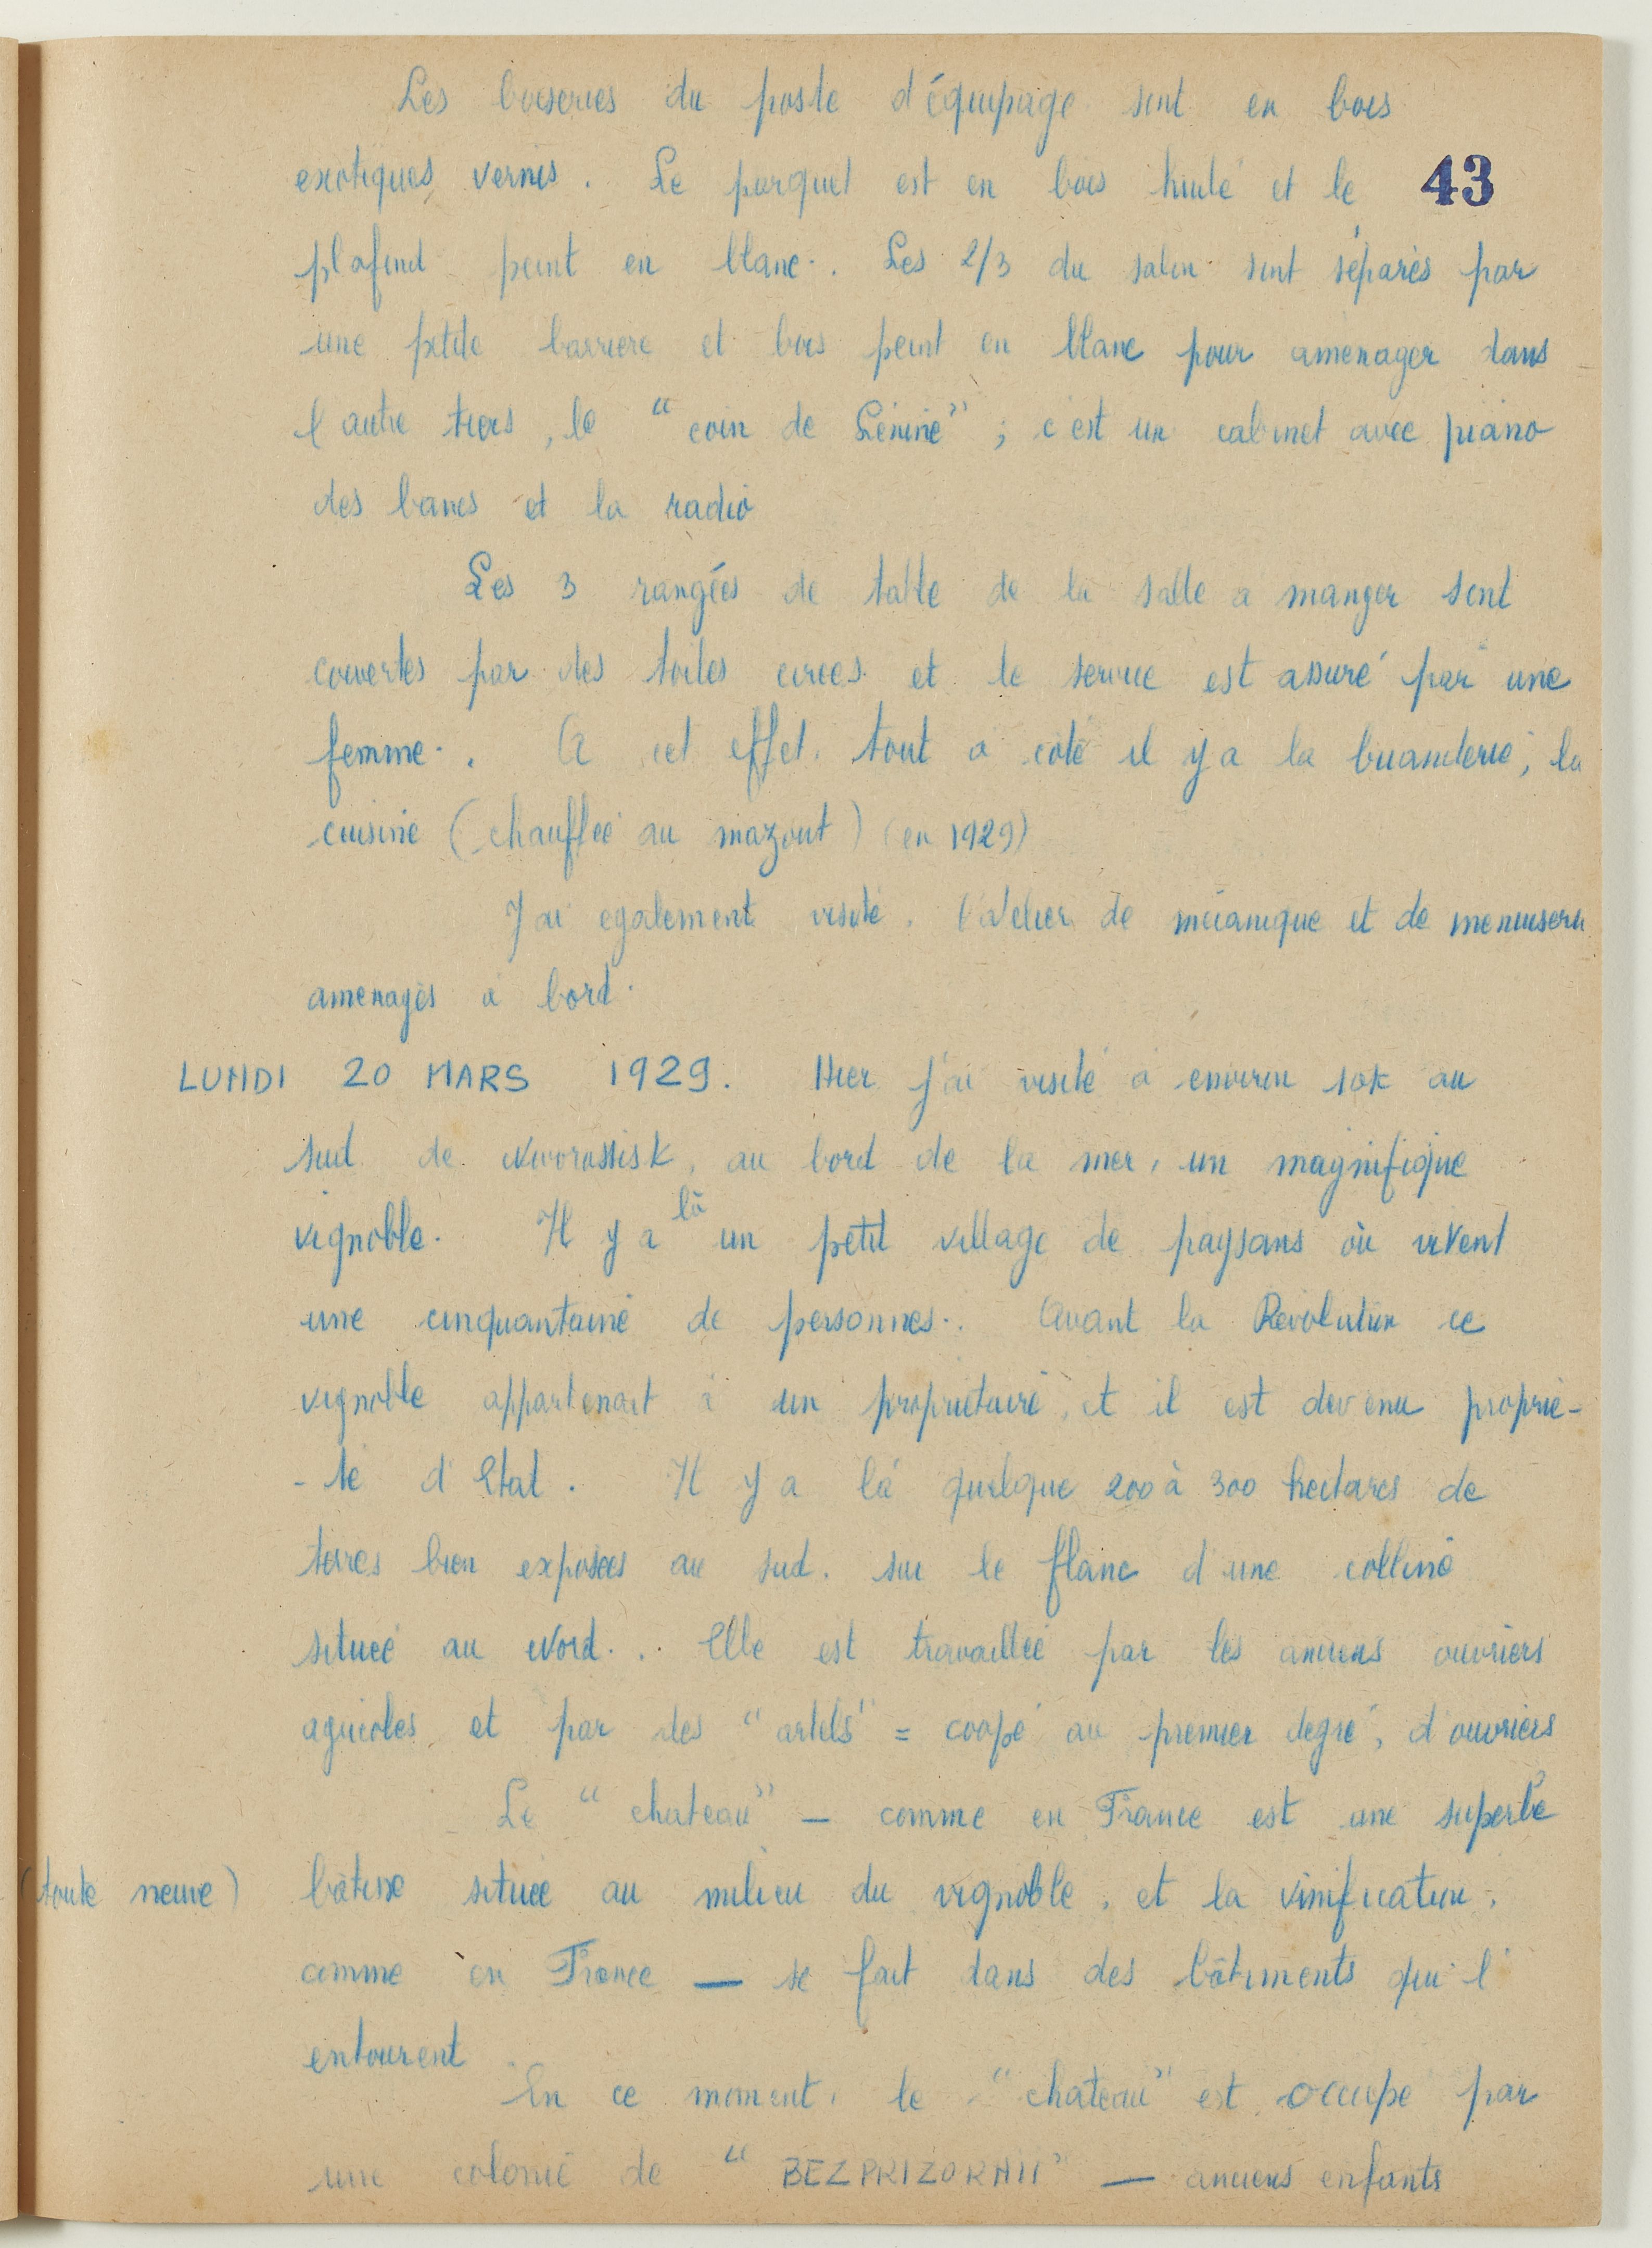 Les boiseries du poste d'équipage sont en bois
exotiques vernis. Le parquet est en bois huilé et le
43
plafond peint en blanc. Les 2/3 du salon sont séparés par
une petite barriere et bois peint en blanc pour amenager dans
l'autre tiers, le "coin de Lénine" ; c'est un cabinet avec piano
des bancs et la radio
Les 3 rangées de table de la salle a manger sont
couvertes par des toiles cirees et le service est assuré par une
femme. A cet effet, tout a coté il y a la buanderie, la
cuisine (chauffée au mazout) (en 1929)
J'ai egalement visité l'atelier de mécanique et de menuiserie
amenagés à bord.
LUNDI 20 MARS 1929. Hier j'ai visité à environ 10k au
sud de Novorossisk, au bord de la mer, un magnifique
vignoble. Il y a là un petit village de paysans où vivent
une cinquantaine de personnes. Avant la Révolution ce
vignoble appartenait à un propriétaire, et il est devenu proprié-
-té d'Etat. Il y a là quelque 200 à 300 hectares de
terres bien exposées au sud, sur le flanc d'une colline
située au Nord. Elle est travaillée par les anciens ouvriers
agricoles et par des "artels" = coopé au premier degré, d'ouvriers
Le "chateau" — comme en France est une superbe
(toute neuve) bâtisse située au milieu du vignoble, et la vinification,
comme en France — se fait dans des bâtiments qui l'
entourent
En ce moment, le "chateau" est occupé par
une colonie de "BEZPRIZORNII" — anciens enfants